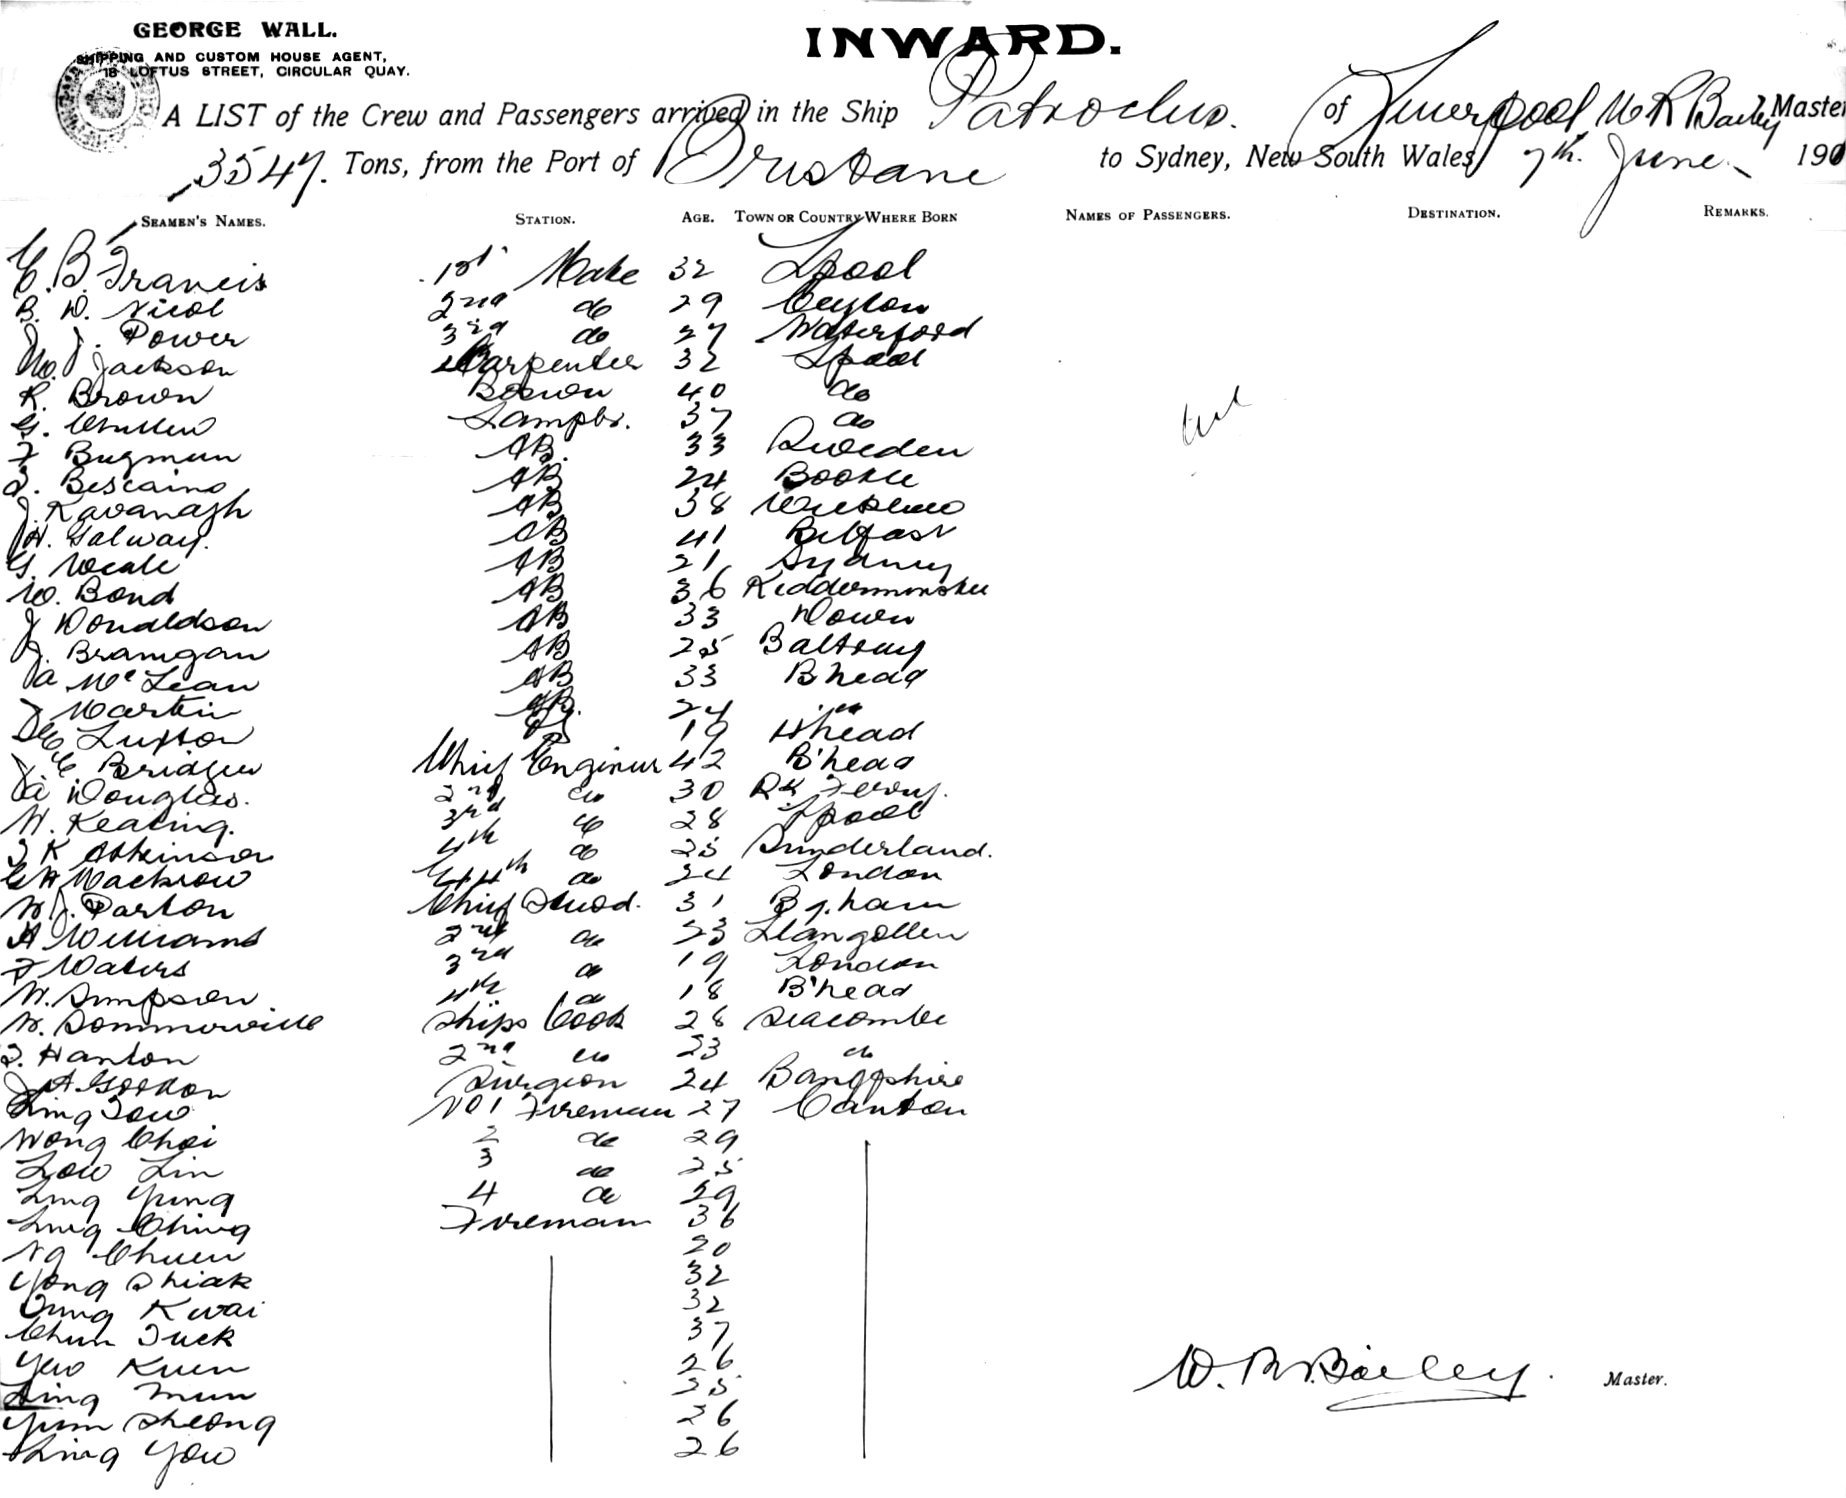 GEORGE WALL.
SHIPPING AND CUSTOM HOUSE AGENT,
18 LOFTUS STREET, CIRCULAR QUAY.
INWARD.
A LIST of the Crew and Passengers arrived in the Ship Patroclus. of Liverpool W R Bailey Master
3547. Tons, from the Port of Brisbane to Sydney, New South Wales, 7th. June 190
SEAMEN'S NAMES. STATION. AGE. TOWN OR COUNTRY WHERE BORN NAMES OF PASSENGERS. DESTINATION. REMARKS.
C. B. Francis 1st Mate 32 Lpool
B. D. Nicol 2nd do 29 Ceylon
J. J. Power 3rd do 27 Waterford
Wo. Jackson Carpenter 32 Lpool
R. Brown Boswn 40 do
G. Chullew Lamptr. 37 do
F Bugmun AB. 33 Sweden
Bescaino AB 24 Bootle
J. Kavanagh AB 38 Wicklow
H. Galway. AB 41 Belfast
G. Neale AB 21 Sydney
W. Bond AB 36 Kidderminster
J Donaldson AB 33 Down
J. Branigan AB 25 Baltray
A McLean AB 33 B'head
J Martin AB. 24 do
Luxton 19 Hhead
J C Bridges Chief Engineer 42 B'head
A Douglas. 2nd do 30 Rk Ferry.
W. Keating. 3rd do 28 Lpool
T K Atkinson 4th do 25 Sunderland.
G H Mackrow 4th do 24 London
W J. Parton Chief Stwd. 31 B'ham
A Williams 2nd do 23 Llangollen
F Waters 3rd do 19 London
W. Simpson 4th do 18 B'head
W. Sommerville Ships Cook 28 Seacombe
T. Hanlon 2nd do 23 do
J A Gordon Surgeon 24 Banffshire
Ling Tow No 1 Fireman 27 Canton
Wong Choi 2 do 29
Low Lin 3 do 25
Ling Yung 4 do 29
Ling Ching Fireman 36
Ng Chuen 20
Yong Shiak 32
Tung Kwai 32
Chun Tuck 37
Yew Kuen 26
Ling Mun 35
Yum Sheong 26
Ling Yow 26
W. R. Bailey. Master.